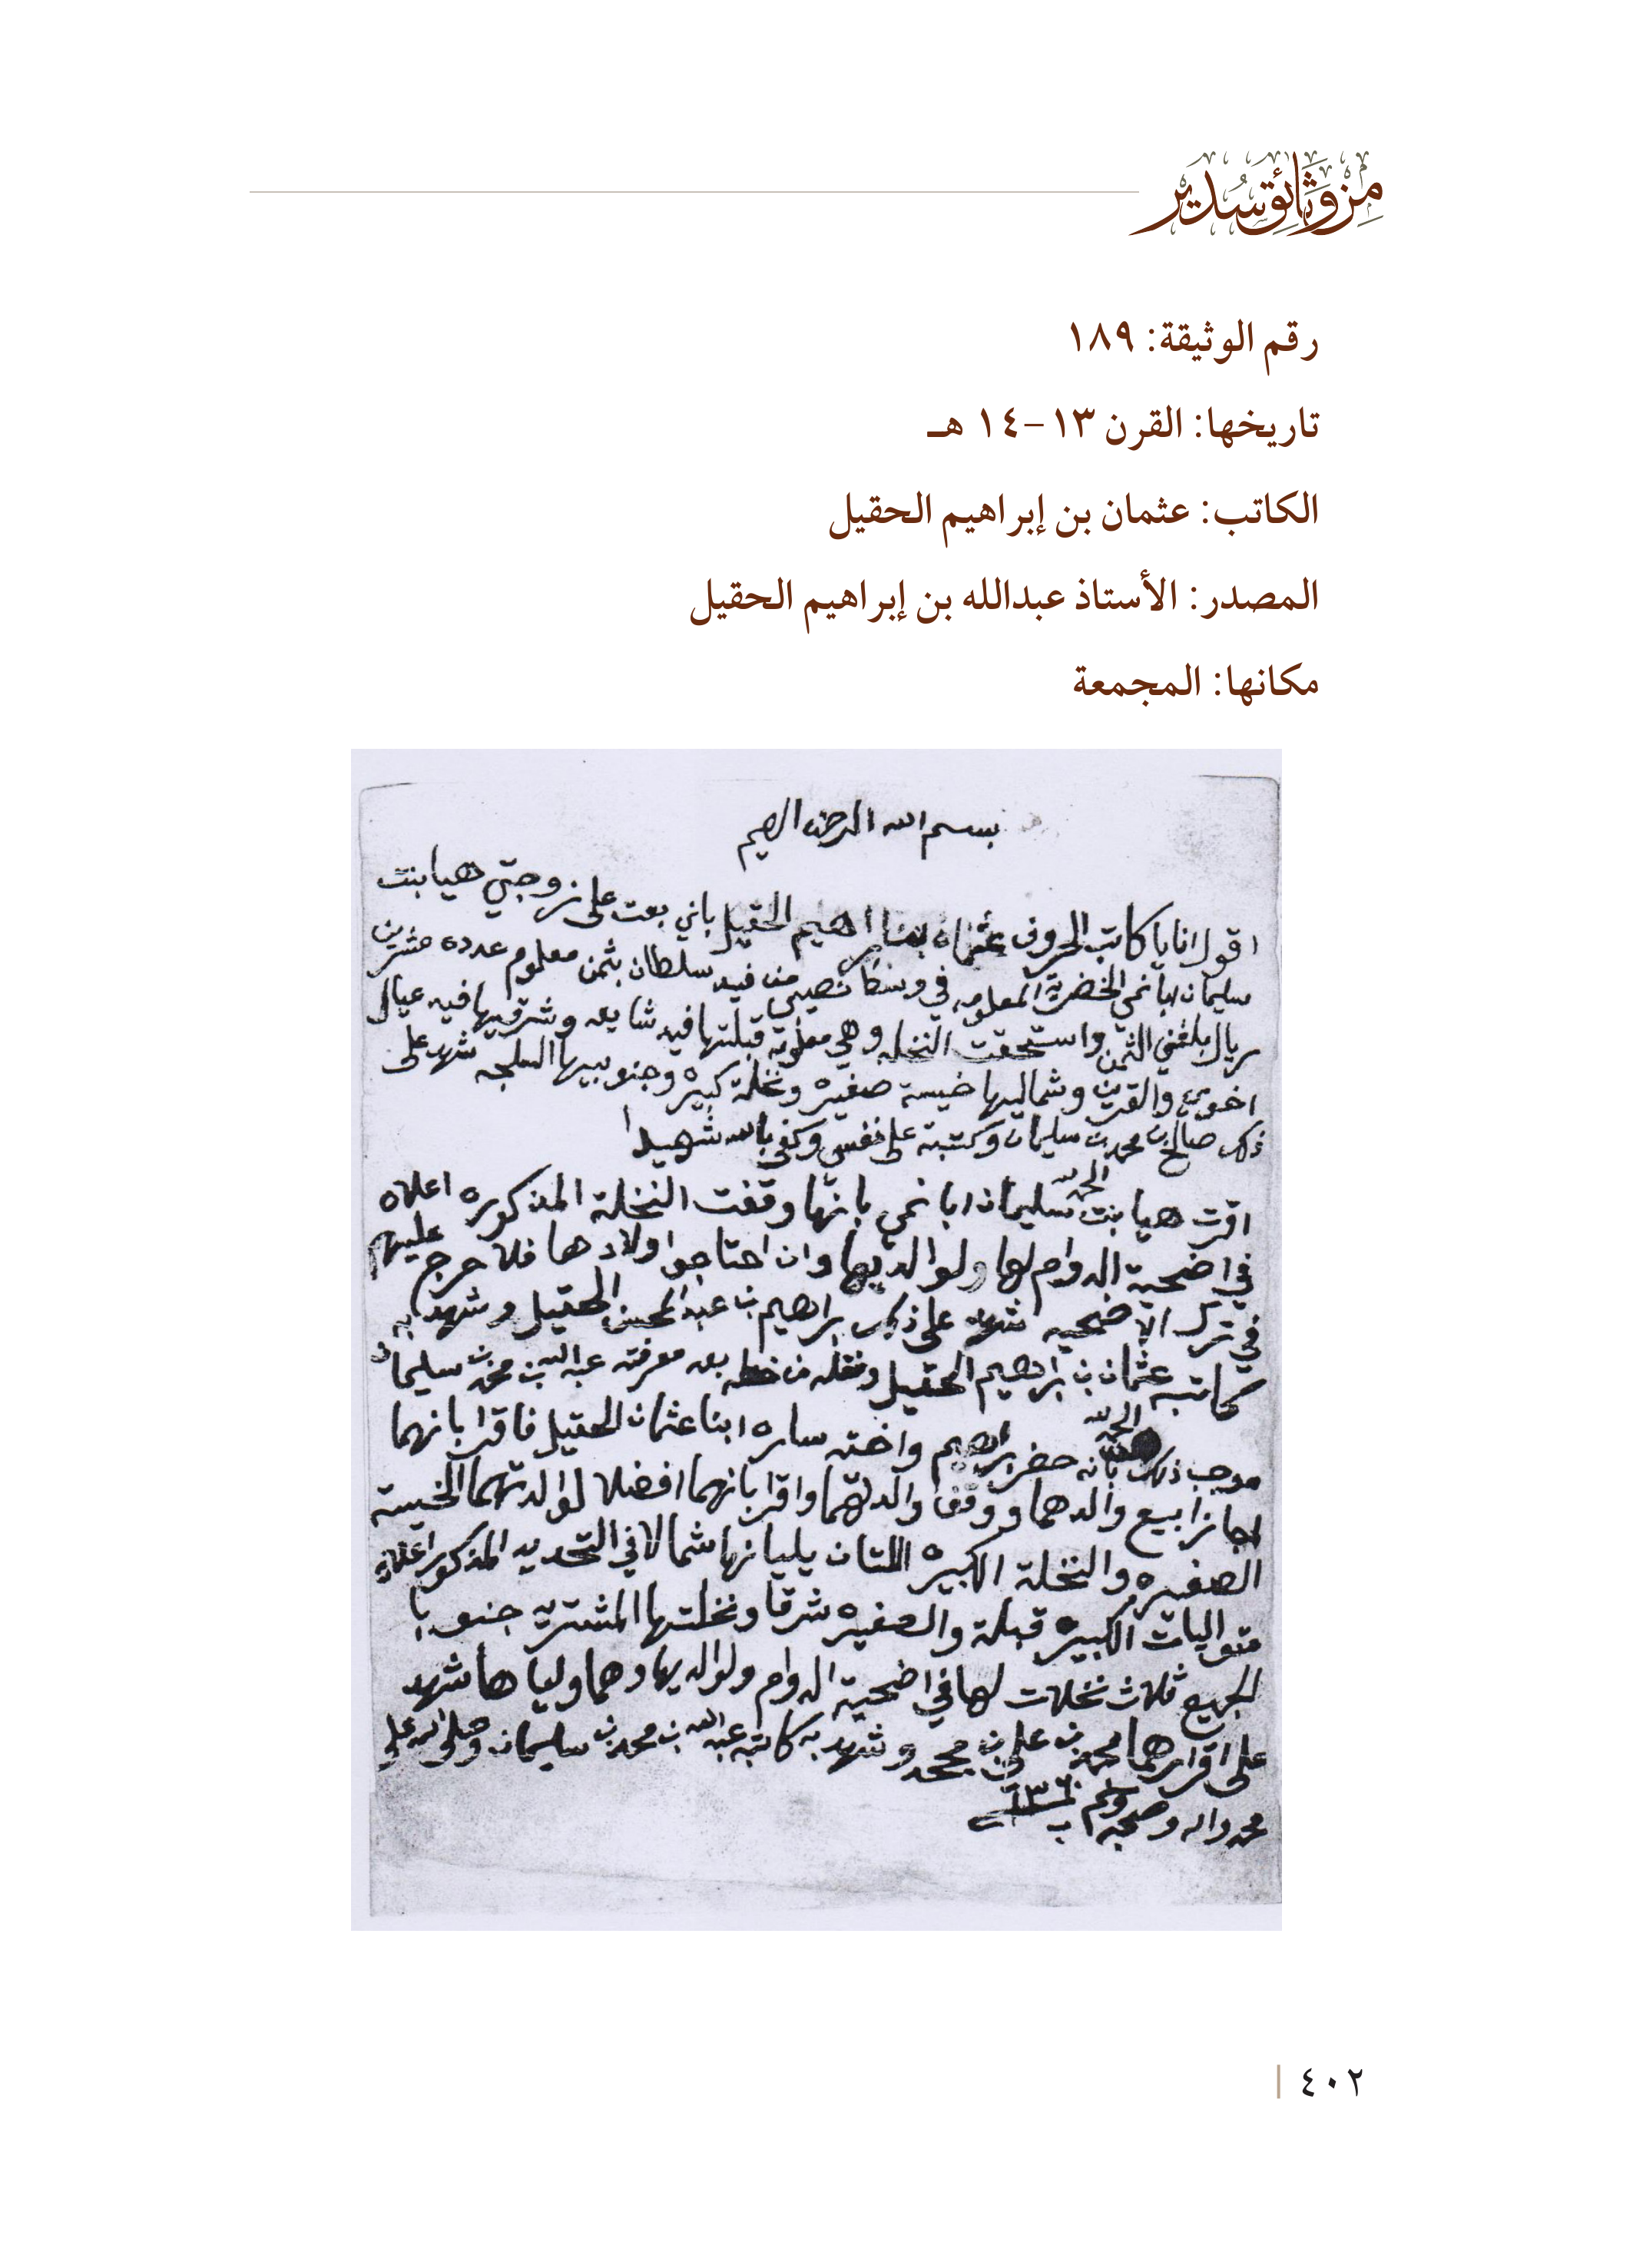 من وثائق سدير
رقم الوثيقة: ١٨٩
تاريخها: القرن ١٣-١٤ هـ
الكاتب: عثمان بن إبراهيم الحقيل
المصدر: الأستاذ عبدالله بن إبراهيم الحقيل
مكانها: المجمعة
بسم الله الرحمن الرحيم
اقول انا يا كاتب الحروف عثمان بن ابراهيم الحقيل باني بعت على زوجتي هيا بنت
سليمان ابا نمي الخضرية المعلومه في وسط نصيبي من فيد سلطان بثمن معلوم عدده عشرين
ريال بلغني الثمن واستحقت النخله وهي معلومة قبلتها فيد شايعه وشرقيها فيه عيال
اخوي والقرين وشماليها خيسة صغيره ونخلة كبيره وجنوبيها شهد على
ذلك صالح بن محمد بن سليمان وكتبته على نفسي وكفى بالله شهيدا
الحمد لله
اقرت هيا بنت سليمان ابا نمي بانها وقفت النخلة المذكوره اعلاه
في اضحية الدوام لها ولوالديها وان احتاجوا اولادها فلا حرج عليهم
في ترك الاضحيه شهد على ذلك ابراهيم بن عبدالمحسن الحقيل وشهد به
كاتبه عثمان بن ابراهيم الحقيل ونقله من خطه بعد معرفته عبدالله بن محمد بن سليمان
الحمد لله
موجب ذلك بانه حضر ابراهيم واخته ساره ابنا عثمان الحقيل فاقرا بانهما
اجازا بيع والدهما ووقف والدتهما واقرا بانهما افضلا لوالدتهما الخيسة
الصغيره والنخلة الكبيره اللتان يليانها شمالا في التحديد المذكور اعلاه
متواليات الكبيره قبلة والصغيره شرقا ونخلتها المشتريه جنوبا
الجميع ثلاث نخلات لها في اضحية الدوام ولوالديها وهما ولياها شهد
على اقرارهما محمد بن علي بن محمد وشهد به كاتبه عبدالله بن محمد بن سليمان وصلى الله على
محمد واله وصحبه وسلم
٤٠٢